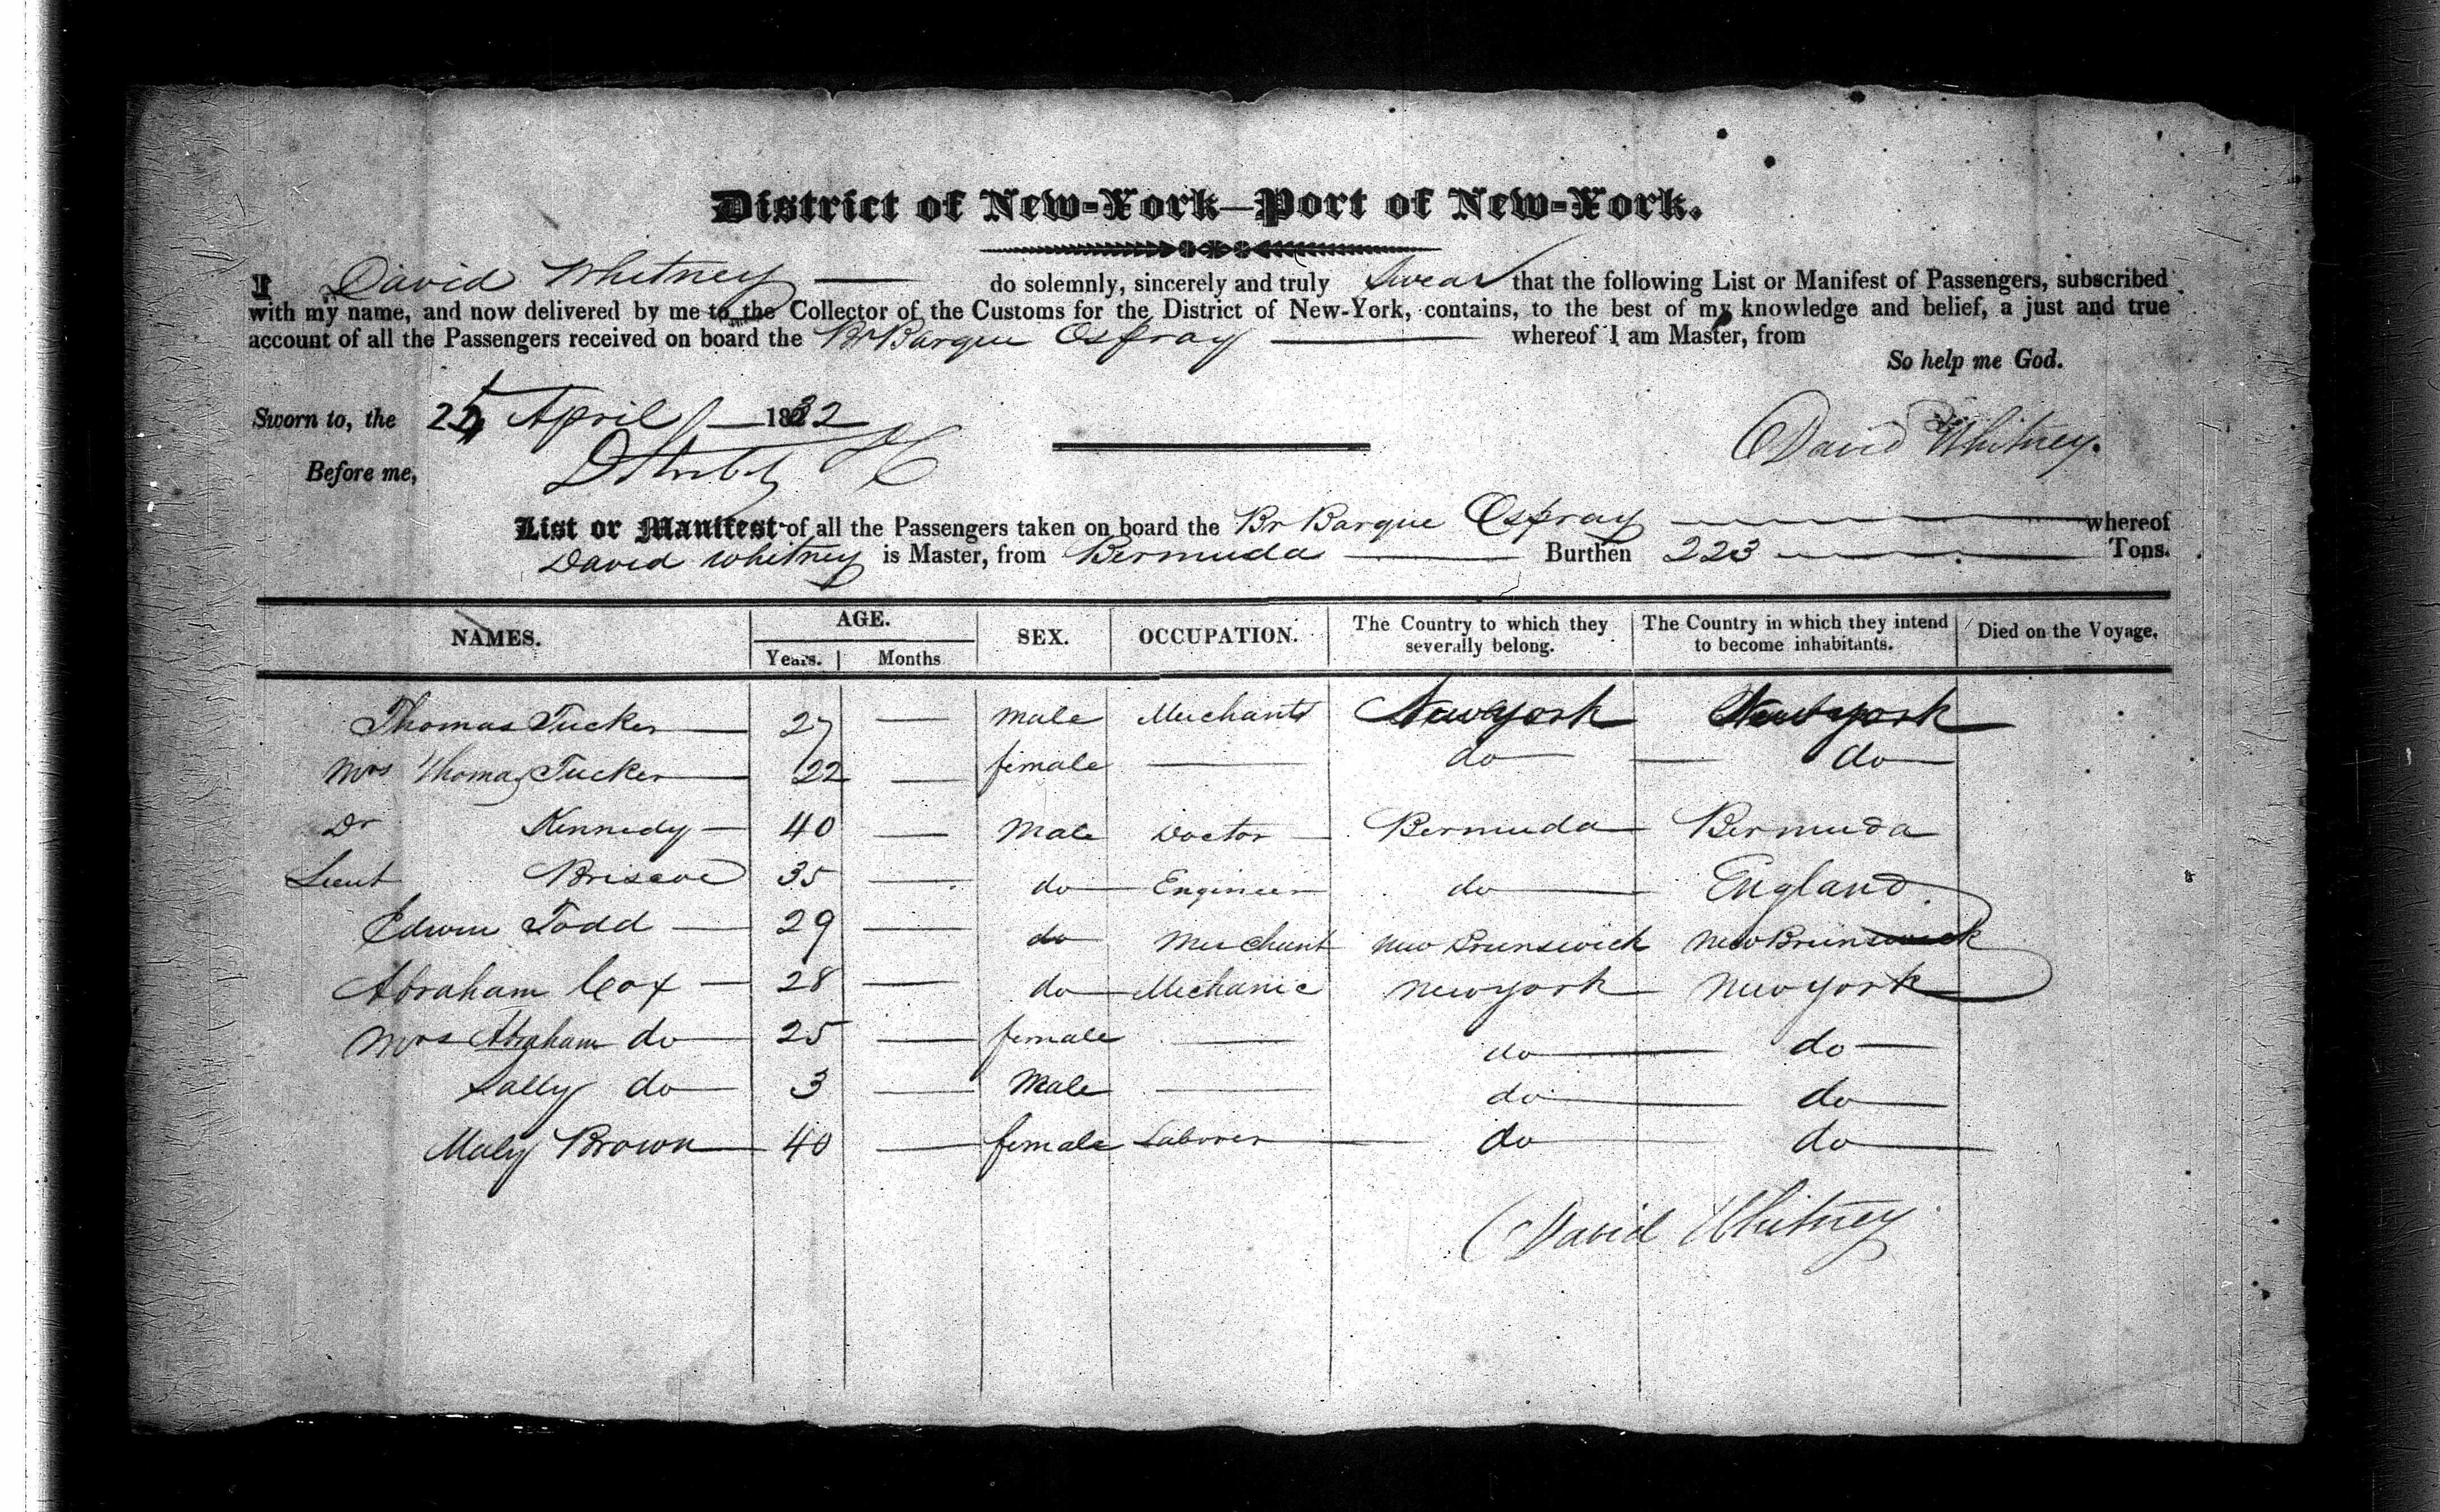 District of New-York—Port of New-York.
I David Whitney — do solemnly, sincerely and truly Swear that the following List or Manifest of Passengers, subscribed
with my name, and now delivered by me to the Collector of the Customs for the District of New-York, contains, to the best of my knowledge and belief, a just and true
account of all the Passengers received on board the Br Barque Ospray — whereof I am Master, from
So help me God.
Sworn to, the April 1832
David Whitney.
Before me,
List or Manifest of all the Passengers taken on board the Br Barque Ospray — whereof
David Whitney is Master, from Bermuda — Burthen 223 — Tons.
NAMES. AGE. SEX. OCCUPATION. The Country to which they severally belong. The Country in which they intend to become inhabitants. Died on the Voyage.
Years. Months
Thomas Tucker — 27 — Male Merchant New York New York
Mrs Thomas Tucker — 22 — female — do — do —
Dr Kennedy — 40 — Male Doctor — Bermuda — Bermuda
Lieut Briscoe 35 — do — Engineer do — England
Edwin Todd — 29 — do Merchant New Brunswick New Brunswick
Abraham Cox — 28 — do — Mechanic New york — New york
Mrs Abraham do — 25 — female — do — do —
Sally do — 3 — Male — do — do —
Maly Brown — 40 — female Laborer — do — do —
David Whitney